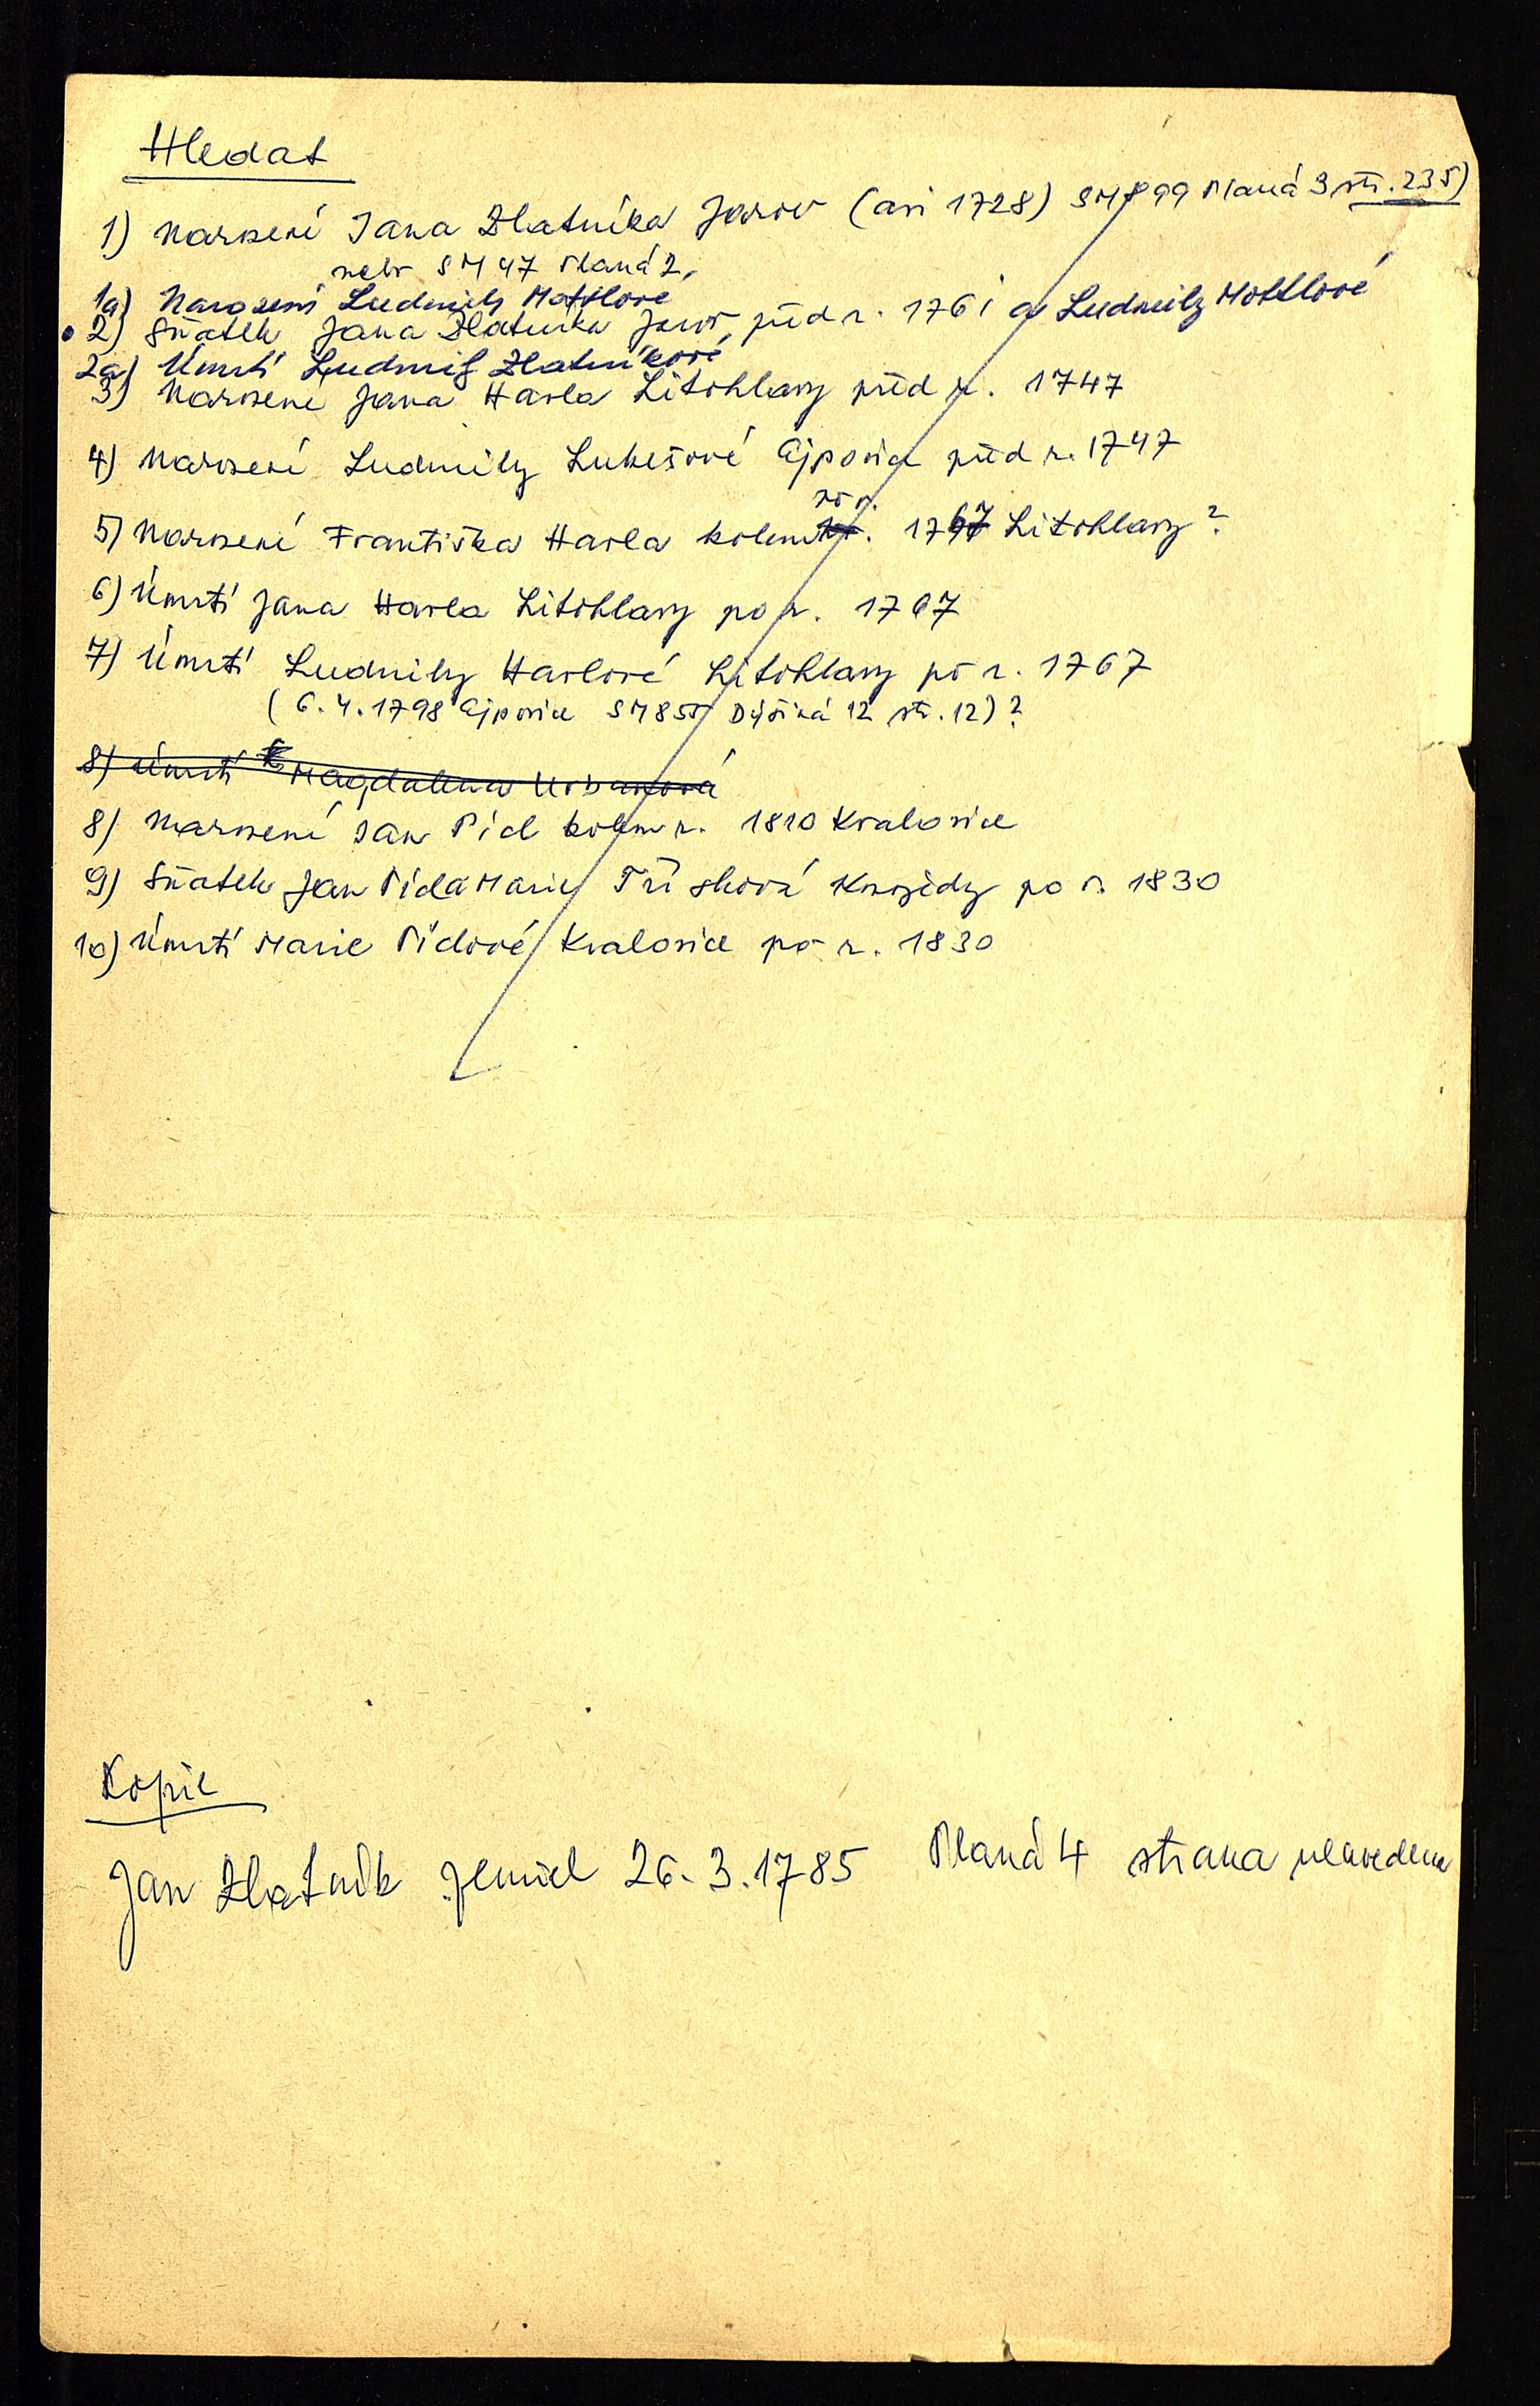 Hledat
1) Narození Jana Zlatníka Jarov (asi 1728) SM 899 Planá 3 str. 235)
nebo SM 47 Planá 2,
1a) Narození Ludmily Mottlové
2) Sňatek Jana Zlatníka Jarov před r. 1761 a Ludmily Mottlové
2a) Úmrtí Ludmily Zlatníkové
3) Narození Jana Havla Litohlavy před r. 1747
4) Narození Ludmily Lukešové Ejpovice před r. 1747
5) Narození Františka Havla kolem r. 1767 Litohlavy?
6) Úmrtí Jana Havla Litohlavy po r. 1767
7) Úmrtí Ludmily Havlové Litohlavy po r. 1767
(6.4.1798 Ejpovice SM 855 Dýšiná 12 str. 12)?
8) Úmrtí Magdalena Urbanová
8) Narození Jan Pícl kolem r. 1810 Kralovice
9) Sňatek Jan Pícl a Marie po r. 1830
10) Úmrtí Marie Píclové Kralovice po r. 1830
Kopie
Jan Zlatník 26.3.1785 Planá 4 strana neuvedena